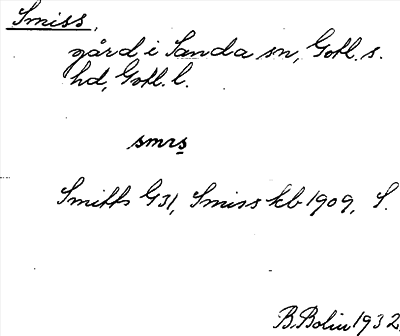 Smiss,
gård i Sanda sn, Gotl. s.
hd, Gotl. l.
smɪs
Smitts G31, Smiss kb 1909, S.
B. Bolin 1932